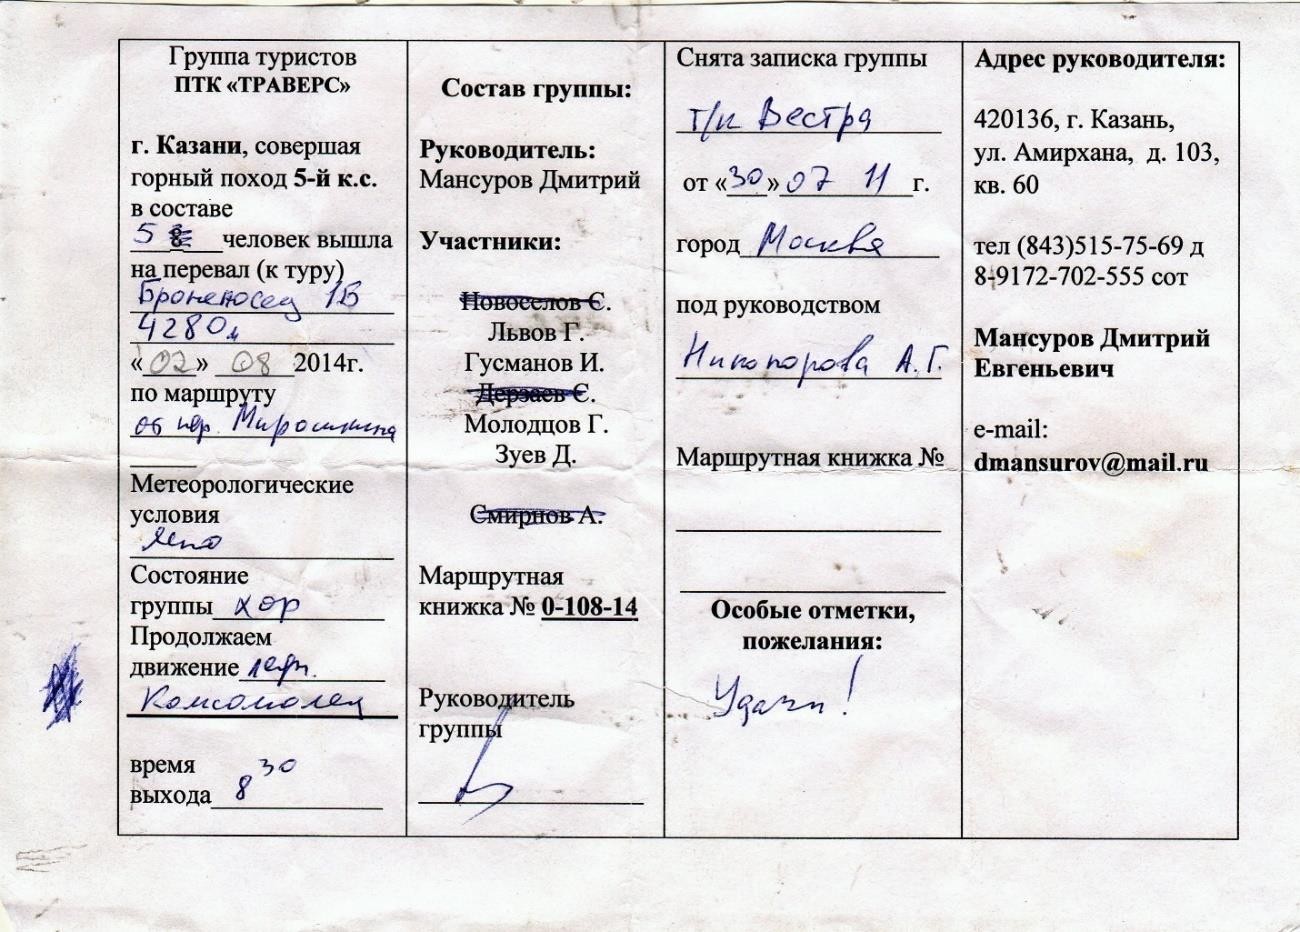 Группа туристов
ПТК «ТРАВЕРС»
г. Казани, совершая
горный поход 5-й к.с.
в составе
5 человек вышла
на перевал (к туру)
Броненосец 1В
4280м
«02» 08 2014г.
по маршруту
от пер. Мирошкина
Метеорологические
условия
Ясно
Состояние
группы хор
Продолжаем
движение пер.
Комсомолец
время
выхода 8 30
Состав группы:
Руководитель:
Мансуров Дмитрий
Участники:
Новоселов С.
Львов Г.
Гусманов И.
Дерзаев С.
Молодцов Г.
Зуев Д.
Смирнов А.
Маршрутная
книжка № 0-108-14
Руководитель
группы
Снята записка группы
т/к Вестра
от «30» 07 11 г.
город Москва
под руководством
Никопорова А.Г.
Маршрутная книжка №
Особые отметки,
пожелания:
Удачи!
Адрес руководителя:
420136, г. Казань,
ул. Амирхана, д. 103,
кв. 60
тел (843)515-75-69 д
8-9172-702-555 сот
Мансуров Дмитрий
Евгеньевич
e-mail:
dmansurov@mail.ru